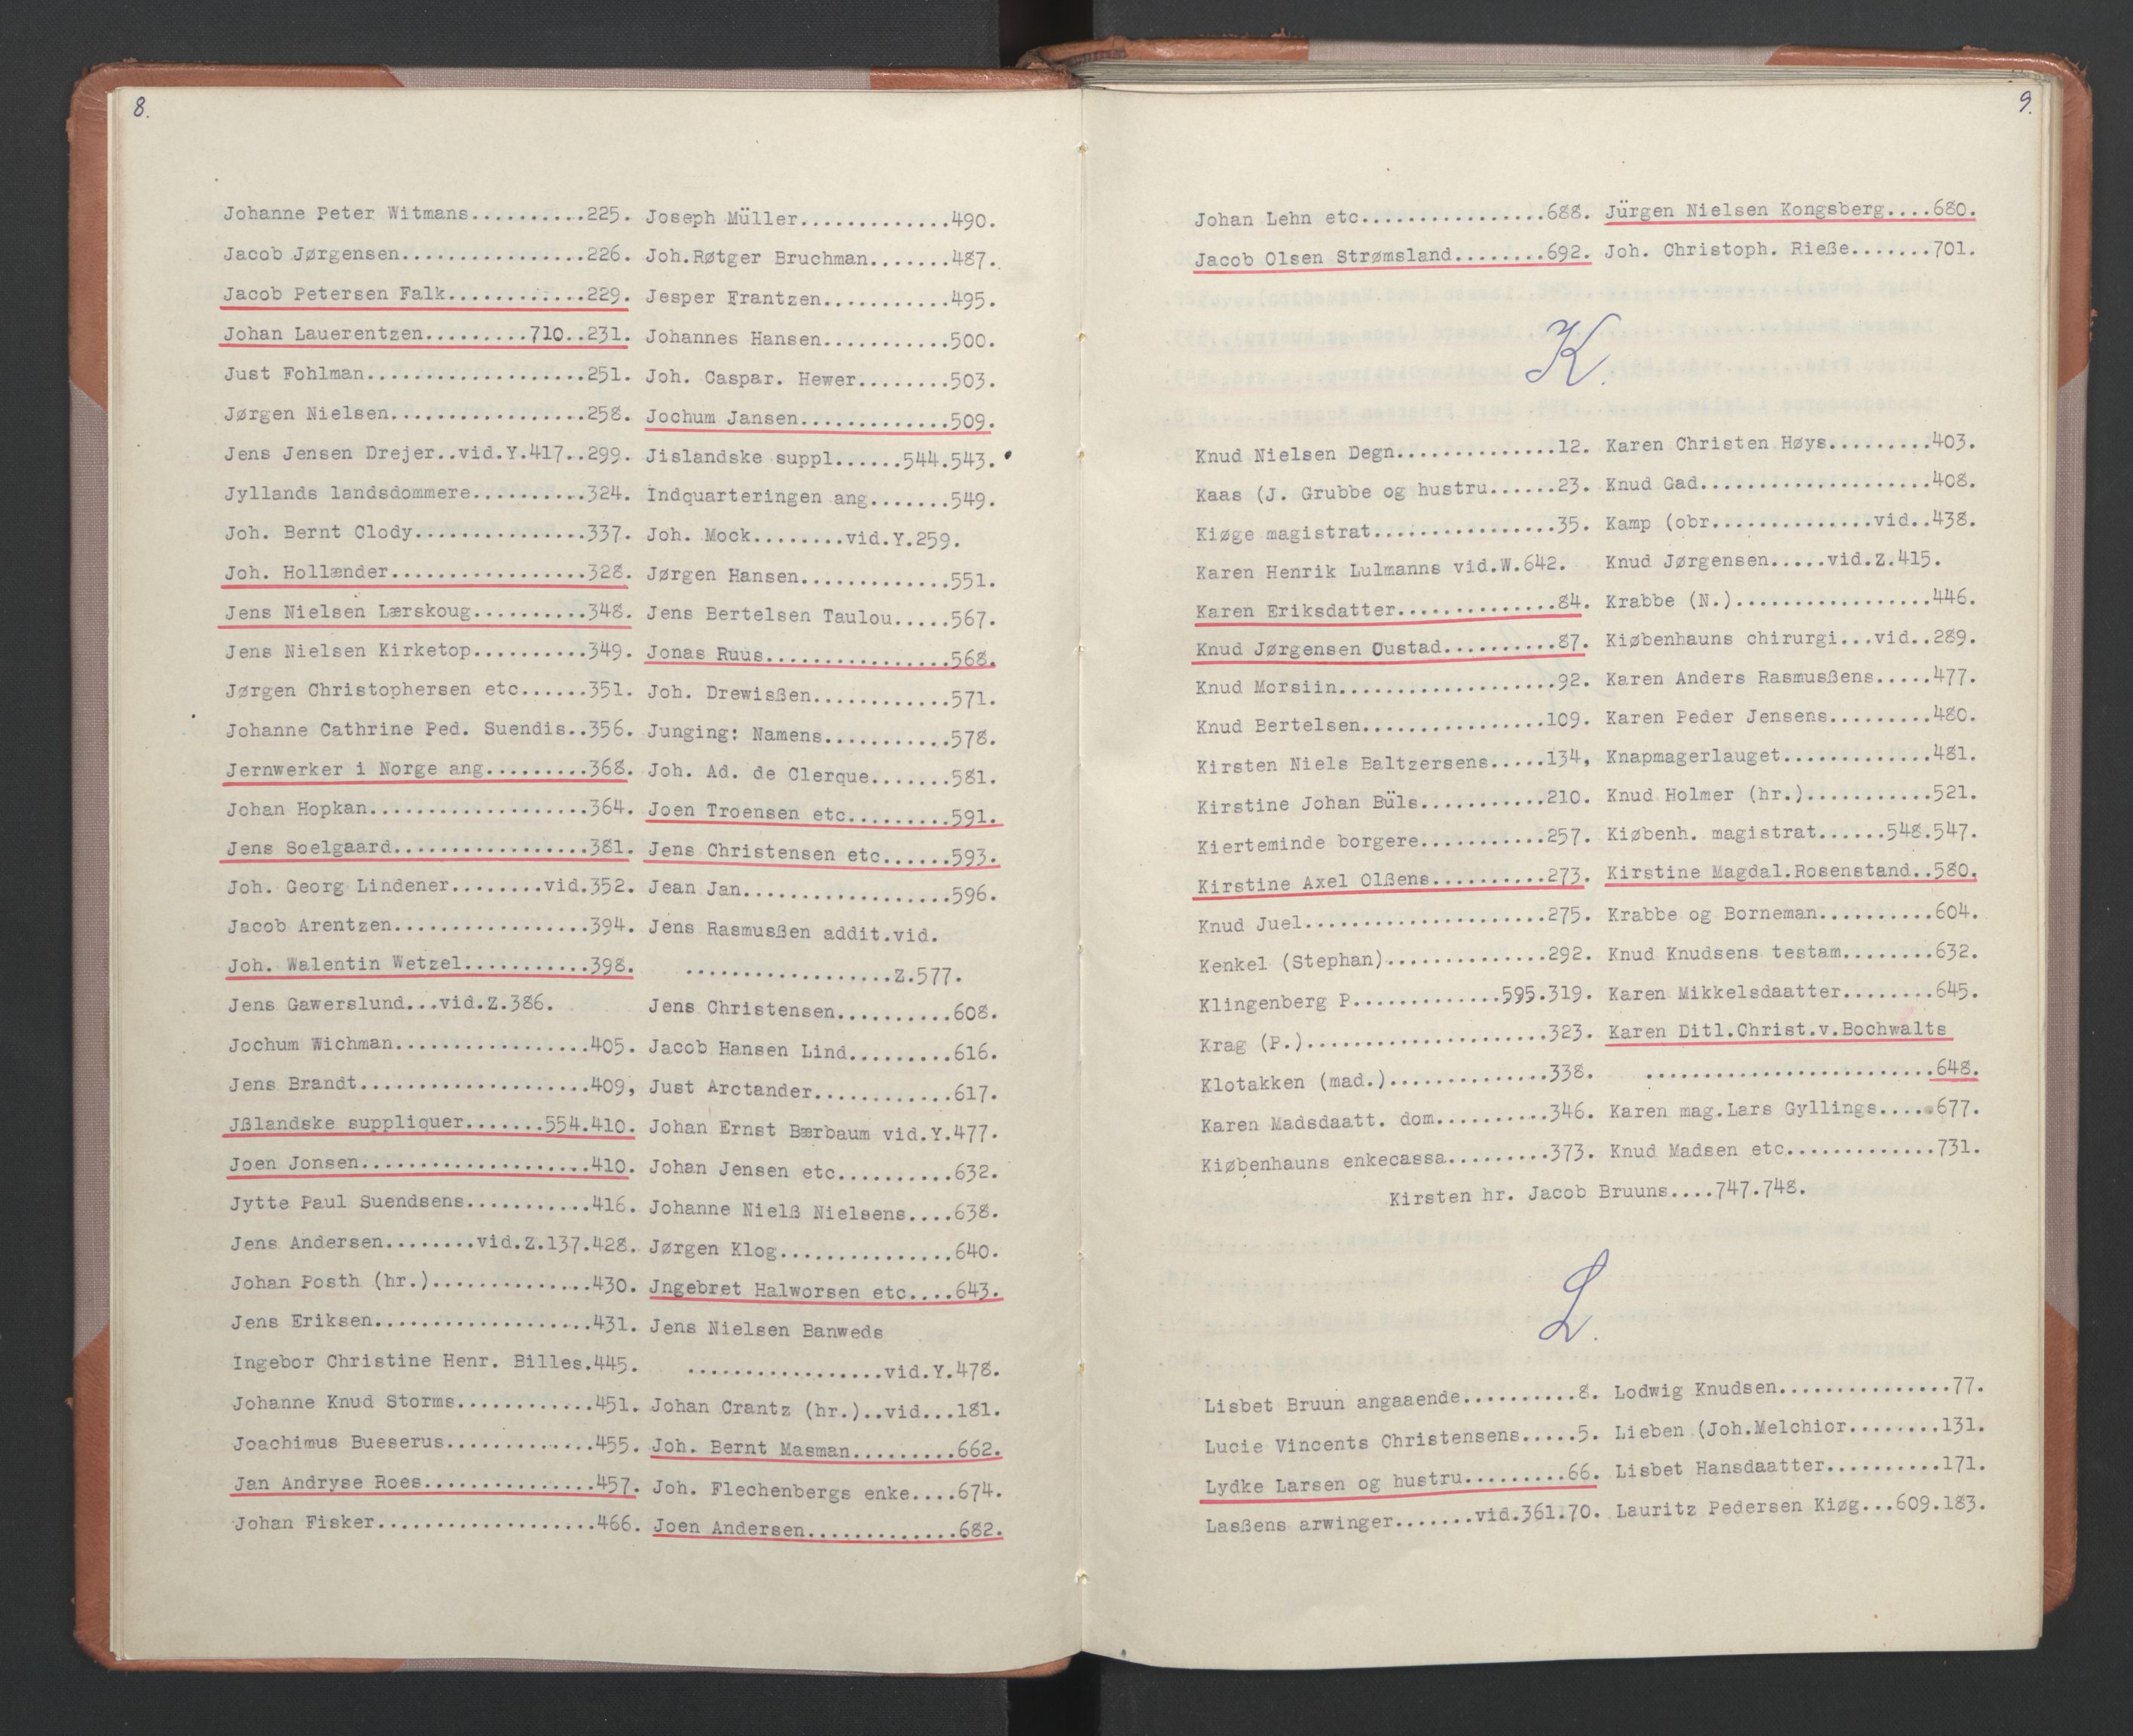 8.
Johanne Peter Witmans..........225.
Jacob Jørgensen................226.
Jacob Petersen Falk............229.
Johan Lauerentzen.........710..231.
Just Fohlman...................251.
Jørgen Nielsen.................258.
Jens Jensen Drejer..vid.Y.417..299.
Jyllands landsdommere..........324.
Joh. Bernt Clody...............337.
Joh. Hollænder.................328.
Jens Nielsen Lærskoug..........348.
Jens Nielsen Kirketop..........349.
Jørgen Christophersen etc......351.
Johanne Cathrine Ped. Suendis..356.
Jernwerker i Norge ang.........368.
Johan Hopkan...................364.
Jens Soelgaard.................381.
Joh. Georg Lindener........vid.352.
Jacob Arentzen.................394.
Joh. Walentin Wetzel...........398.
Jens Gawerslund...vid.Z.386.
Jochum Wichman.................405.
Jens Brandt....................409,
Jßlandske suppliquer.......554.410.
Joen Jonsen....................410.
Jytte Paul Suendsens...........416.
Jens Andersen........vid.Z.137.428.
Johan Posth (hr.)..............430.
Jens Eriksen...................431.
Ingebor Christine Henr. Billes.445.
Johanne Knud Storms............451.
Joachimus Bueserus.............455.
Jan Andryse Roes...............457.
Johan Fisker...................466.
Joseph Müller.............490.
Joh.Røtger Bruchman.......487.
Jesper Frantzen...........495.
Johannes Hansen...........500.
Joh. Caspar. Hewer........503.
Jochum Jansen.............509.
Jislandske suppl......544.543.
Indquarteringen ang.......549.
Joh. Mock........vid.Y.259.
Jørgen Hansen.............551.
Jens Bertelsen Taulou.....567.
Jonas Ruus................568.
Joh. Drewißen.............571.
Junging: Namens...........578.
Joh. Ad. de Clerque.......581.
Joen Troensen etc.........591.
Jens Christensen etc......593.
Jean Jan..................596.
Jens Rasmußen addit.vid.
..................Z.577.
Jens Christensen..........608.
Jacob Hansen Lind.........616.
Just Arctander............617.
Johan Ernst Bærbaum vid.Y.477.
Johan Jensen etc..........632.
Johanne Nielß Nielsens....638.
Jørgen Klog...............640.
Jngebret Halworsen etc....643.
Jens Nielsen Banweds
.................vid.Y.478.
Johan Crantz (hr.)..vid...181.
Joh. Bernt Masman.........662.
Joh. Flechenbergs enke....674.
Joen Andersen.............682.
9.
Johan Lehn etc................688.
Jacob Olsen Strømsland........692.
Jürgen Nielsen Kongsberg....680.
Joh. Christoph. Rieße.......701.
K.
Knud Nielsen Degn..............12.
Kaas (J. Grubbe og hustru......23.
Kiøge magistrat................35.
Karen Henrik Lulmanns vid.W.642.
Karen Eriksdatter..............84.
Knud Jørgensen Oustad..........87.
Knud Morsiin...................92.
Knud Bertelsen................109.
Kirsten Niels Baltzersens.....134,
Kirstine Johan Büls...........210.
Kierteminde borgere...........257.
Kirstine Axel Olßens..........273.
Knud Juel.....................275.
Kenkel (Stephan)..............292.
Klingenberg P.............595.319.
Krag (P.).....................323.
Klotakken (mad.)..............338.
Karen Madsdaatt. dom..........346.
Kiøbenhauns enkecassa.........373.
Karen Christen Høys.........403.
Knud Gad....................408.
Kamp (obr..............vid..438.
Knud Jørgensen.....vid.Z.415.
Krabbe (N.).................446.
Kiøbenhauns chirurgi...vid..289.
Karen Anders Rasmusßens.....477.
Karen Peder Jensens.........480.
Knapmagerlauget.............481.
Knud Holmer (hr.)...........521.
Kiøbenh. magistrat......548.547.
Kirstine Magdal.Rosenstand..580.
Krabbe og Borneman..........604.
Knud Knudsens testam........632.
Karen Mikkelsdaatter........645.
Karen Ditl.Christ.v.Bochwalts
.........................648.
Karen mag.Lars Gyllings.....677.
Knud Madsen etc.............731.
Kirsten hr. Jacob Bruuns....747.748.
L.
Lisbet Bruun angaaende..........8.
Lucie Vincents Christensens.....5.
Lydke Larsen og hustru.........66.
Lasßens arwinger.......vid.361.70.
Lodwig Knudsen...............77.
Lieben (Joh.Melchior........131.
Lisbet Hansdaatter..........171.
Lauritz Pedersen Kiøg...609.183.